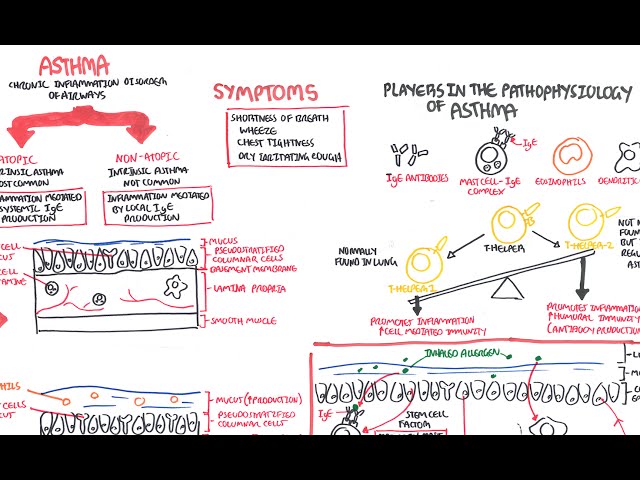 ASTHMA
CHRONIC INFLAMMATION DISORDER
OF AIRWAYS
ATOPIC
NON-ATOPIC
INTRINSIC ASTHMA
NOT COMMON
INFLAMMATION MEDIATED
BY LOCAL IgE
PRODUCTION
OST COMMON
MEDIATED
SYSTEMIC IgE
PRODUCTION
SYMPTOMS
SHORTNESS OF BREATH
WHEEZE
CHEST TIGHTNESS
DRY IRRITATING COUGH
PLAYERS IN THE PATHOPHYSIOLOGY
OF ASTHMA
IgE
IgE ANTIBODIES
MAST CELL-IgE
COMPLEX
EOSINOPHILS
DENDRITIC
NORMALLY
FOUND IN LUNG
T-HELPER
T-HELPER-2
T-HELPER-1
NOT
FOUND
BUT
REGU
AS
PROMOTES INFLAMMATION
↑CELL MEDIATED IMMUNITY
PROMOTES INFLAMMATION
↑HUMURAL IMMUNITY
(ANTIBODY PRODUCTION
CELL
CUT
CELL
AMINE
MUCUS
PSEUDOSTRATIFIED
COLUMNAR CELLS
BASEMENT MEMBRANE
LAMINA PROPRIA
SMOOTH MUSCLE
HILS
CELLS
CUT
MUCUT (↑PRODUCTION)
PSEUDOSTRATIFIED
COLUMNAR CELLS
INHALED ALLERGEN
IgE
STEM CELL
FACTOR